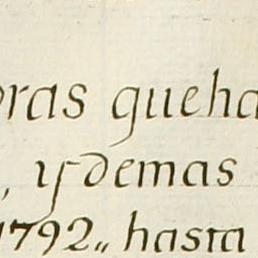 oras que ha
, y demas
1792,, hasta